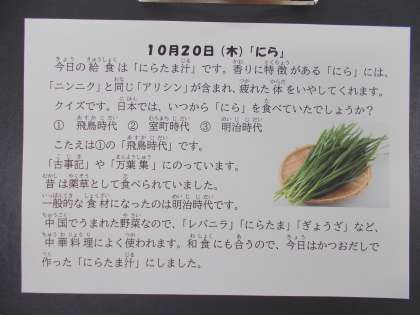 10月20日(木)「にら」
今日の給食は「にらたま汁」です。香りに特徴がある「にら」には、
「ニンニク」と同じ「アリシン」が含まれ、疲れた体をいやしてくれます。
クイズです。日本では、いつから「にら」を食べていたでしょうか?
① 飛鳥時代 ② 室町時代 ③ 明治時代
こたえは①の「飛鳥時代」です。
「古事記」や「万葉集」にのっています。
昔は薬草として食べられていました。
一般的な食材になったのは明治時代です。
中国でうまれた野菜なので、「レバニラ」「にらたま」「ぎょうざ」など、
中華料理によく使われます。和食にも合うので、今日はかつおだしで
作った「にらたま汁」にしました。